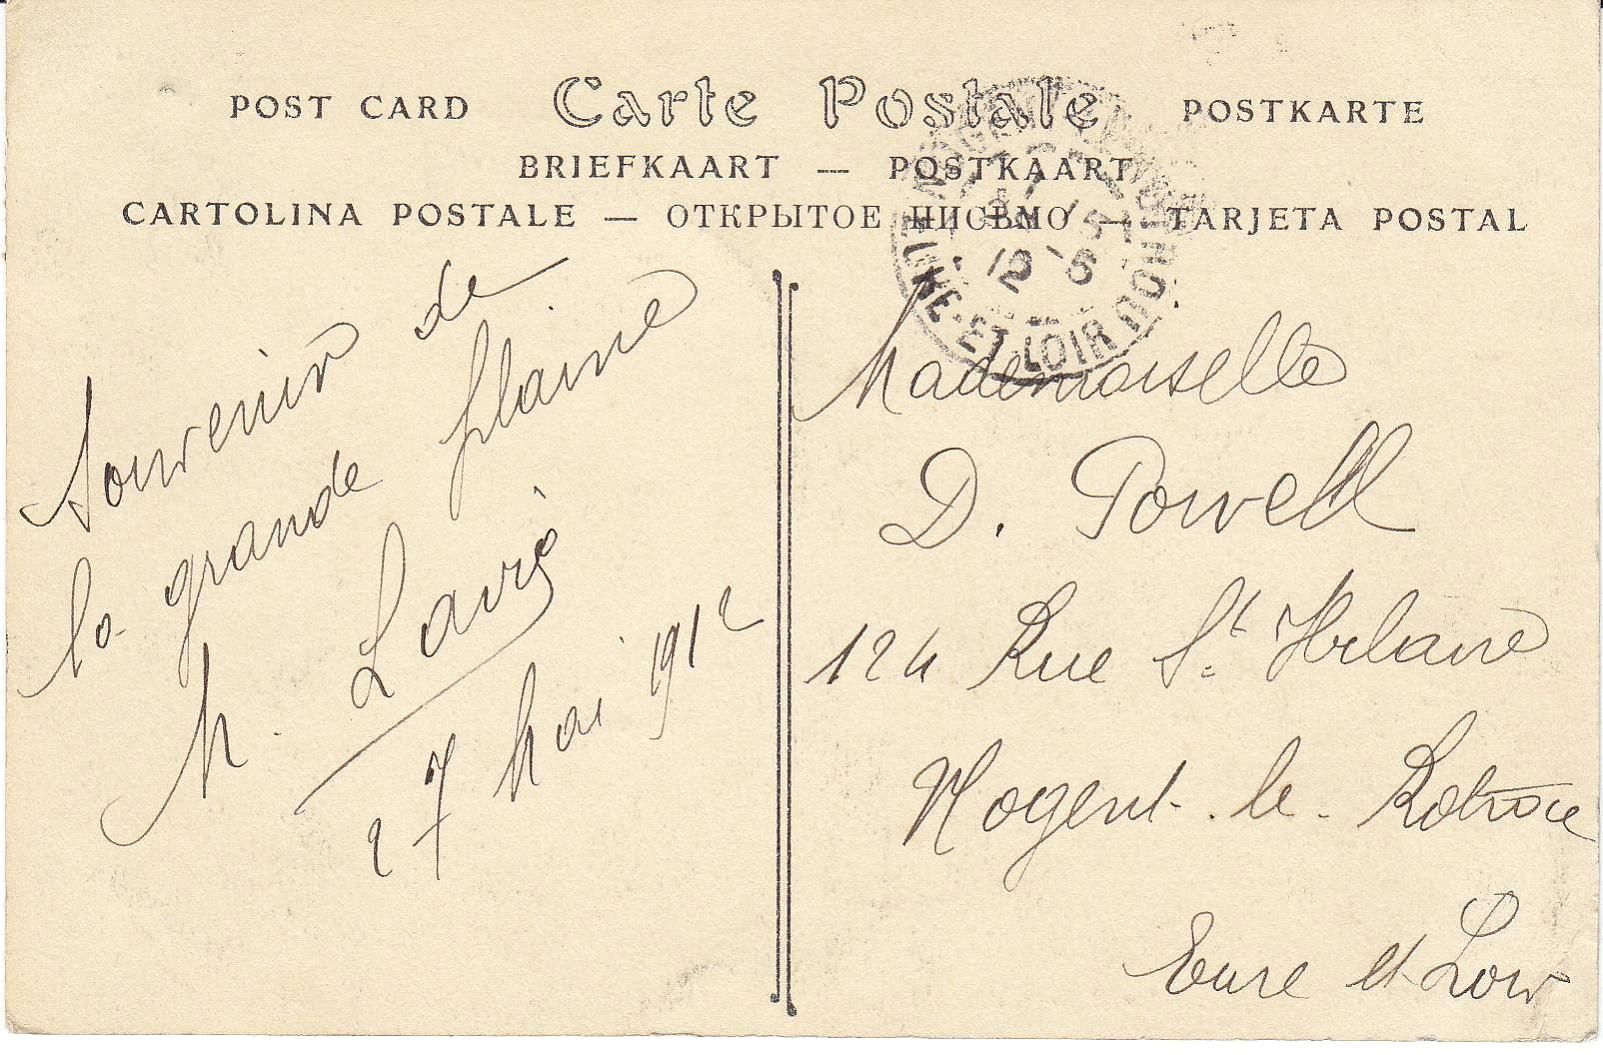 POST CARD Carte Postale POSTKARTE
BRIEFKAART — POSTKAART
CARTOLINA POSTALE — ОТКРЫТОЕ ПИСЬМО — TARJETA POSTAL
Souvenir de
la grande plaine
M.
27 Mai 1912
EURE-ET-LOIR
Mademoiselle
D. Powell
124 Rue St. Hilaire
Nogent-le-Rotrou
Eure et Loir